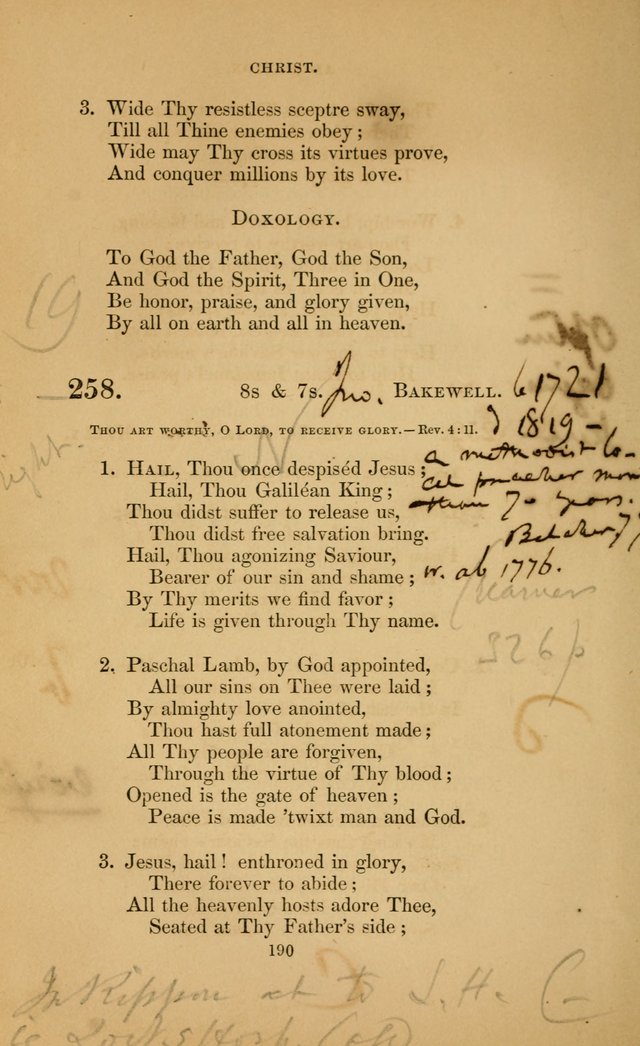 CHRIST.
3. Wide Thy resistless sceptre sway,
Till all Thine enemies obey;
Wide may Thy cross its virtues prove,
And conquer millions by its love.
DOXOLOGY.
To God the Father, God the Son,
And God the Spirit, Three in One,
Be honor, praise, and glory given,
By all on earth and all in heaven.
19
258. 8s & 7s. Jno. BAKEWELL. b 1721
THOU ART WORTHY, O LORD, TO RECEIVE GLORY.—REV. 4:11. d 1819 –
a methodist lo-
1. HAIL, Thou once despiséd Jesus;
cal preacher more
Hail, Thou Galiléan King;
than 70 years.
Thou didst suffer to release us,
Thou didst free salvation bring.
Belcher 77
Hail, Thou agonizing Saviour,
Bearer of our sin and shame; w. ab 1776.
By Thy merits we find favor;
Life is given through Thy name.
2. Paschal Lamb, by God appointed,
All our sins on Thee were laid;
By almighty love anointed,
Thou hast full atonement made;
All Thy people are forgiven,
Through the virtue of Thy blood;
Opened is the gate of heaven;
Peace is made 'twixt man and God.
3. Jesus, hail! enthroned in glory,
There forever to abide;
All the heavenly hosts adore Thee,
Seated at Thy Father's side;
190
In Rippon